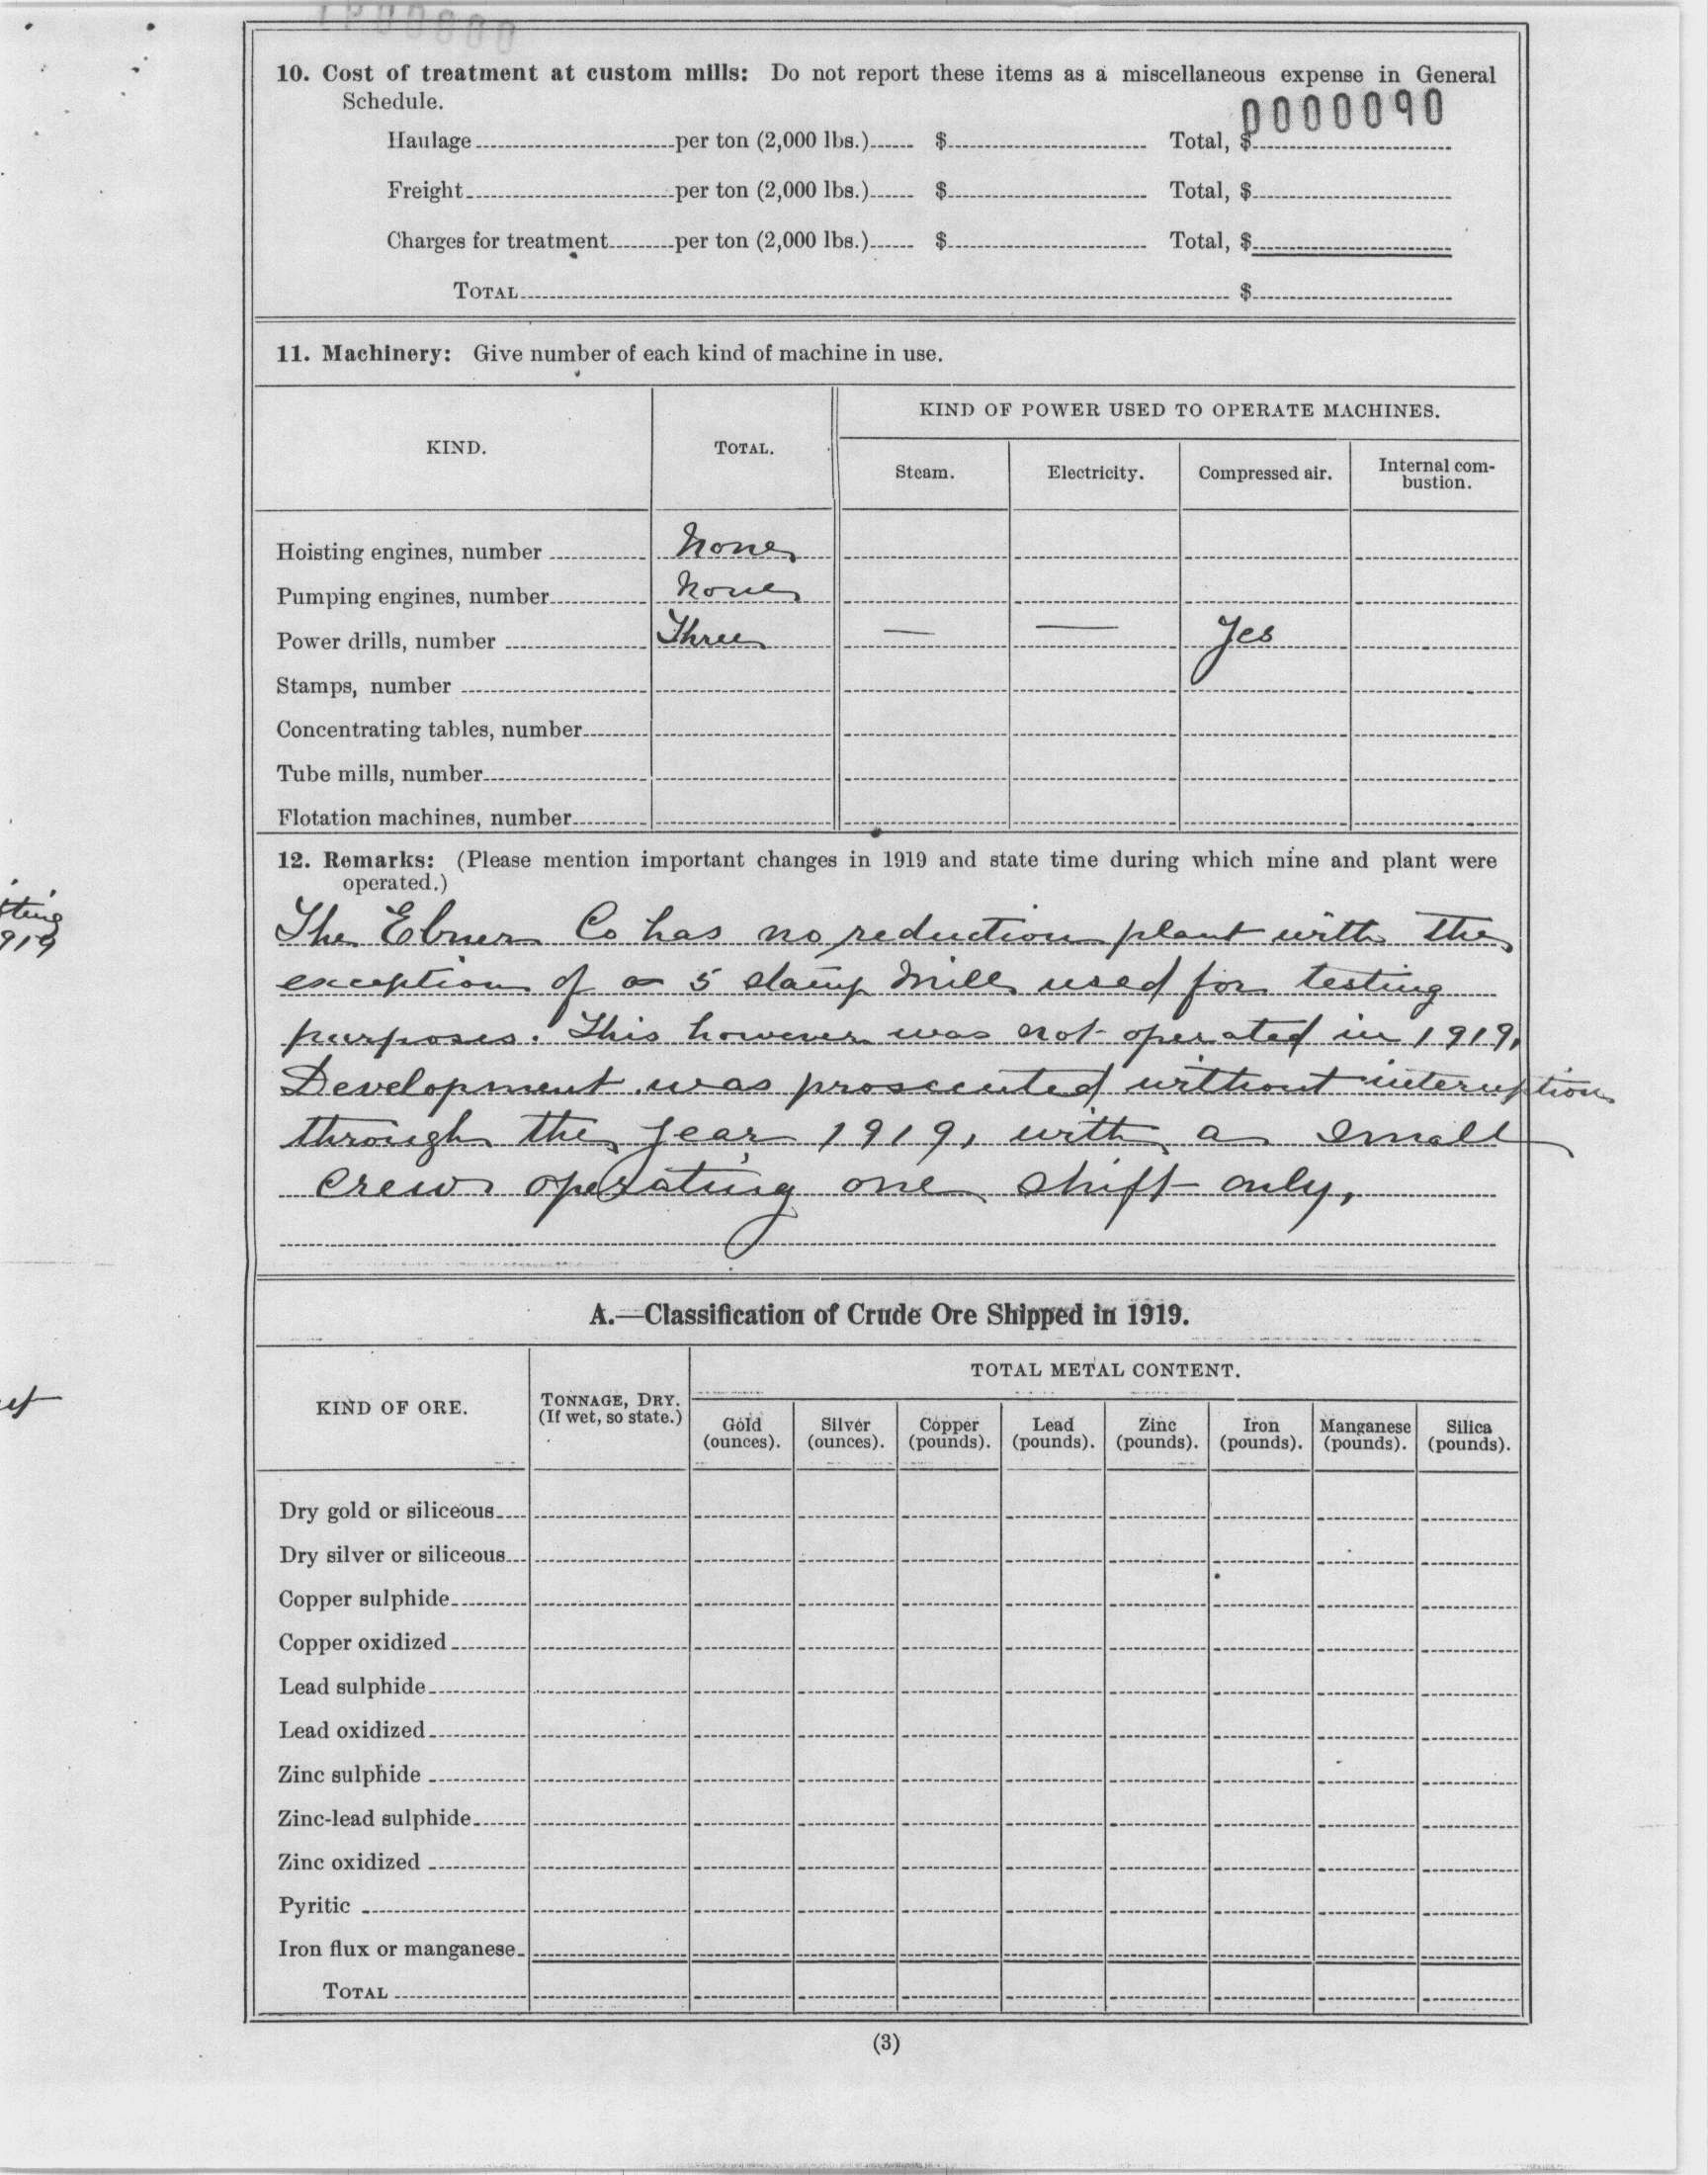 10. Cost of treatment at custom mills: Do not report these items as a miscellaneous expense in General
Schedule.
0000090
Haulage per ton (2,000 lbs.) $ Total, $
Freight per ton (2,000 lbs.) $ Total, $
Charges for treatment per ton (2,000 lbs.) $ Total, $
TOTAL $
11. Machinery: Give number of each kind of machine in use.
KIND. TOTAL. KIND OF POWER USED TO OPERATE MACHINES.
Steam. Electricity. Compressed air. Internal com-
bustion.
Hoisting engines, number None
Pumping engines, number None
Power drills, number Three — — Yes
Stamps, number
Concentrating tables, number
Tube mills, number
Flotation machines, number
12. Remarks: (Please mention important changes in 1919 and state time during which mine and plant were
operated.)
The Ebner Co has no reduction plant with the
exception of a 5 stamp mill used for testing
purposes. This however was not operated in 1919,
Development was prosecuted without interuption
through the year 1919, with a small
crew operating one shift only,
A.—Classification of Crude Ore Shipped in 1919.
KIND OF ORE. TONNAGE, DRY.
(If wet, so state.) TOTAL METAL CONTENT.
Gold
(ounces). Silver
(ounces). Copper
(pounds). Lead
(pounds). Zinc
(pounds). Iron
(pounds). Manganese
(pounds). Silica
(pounds).
Dry gold or siliceous
Dry silver or siliceous
Copper sulphide
Copper oxidized
Lead sulphide
Lead oxidized
Zinc sulphide
Zinc-lead sulphide
Zinc oxidized
Pyritic
Iron flux or manganese
TOTAL
(3)